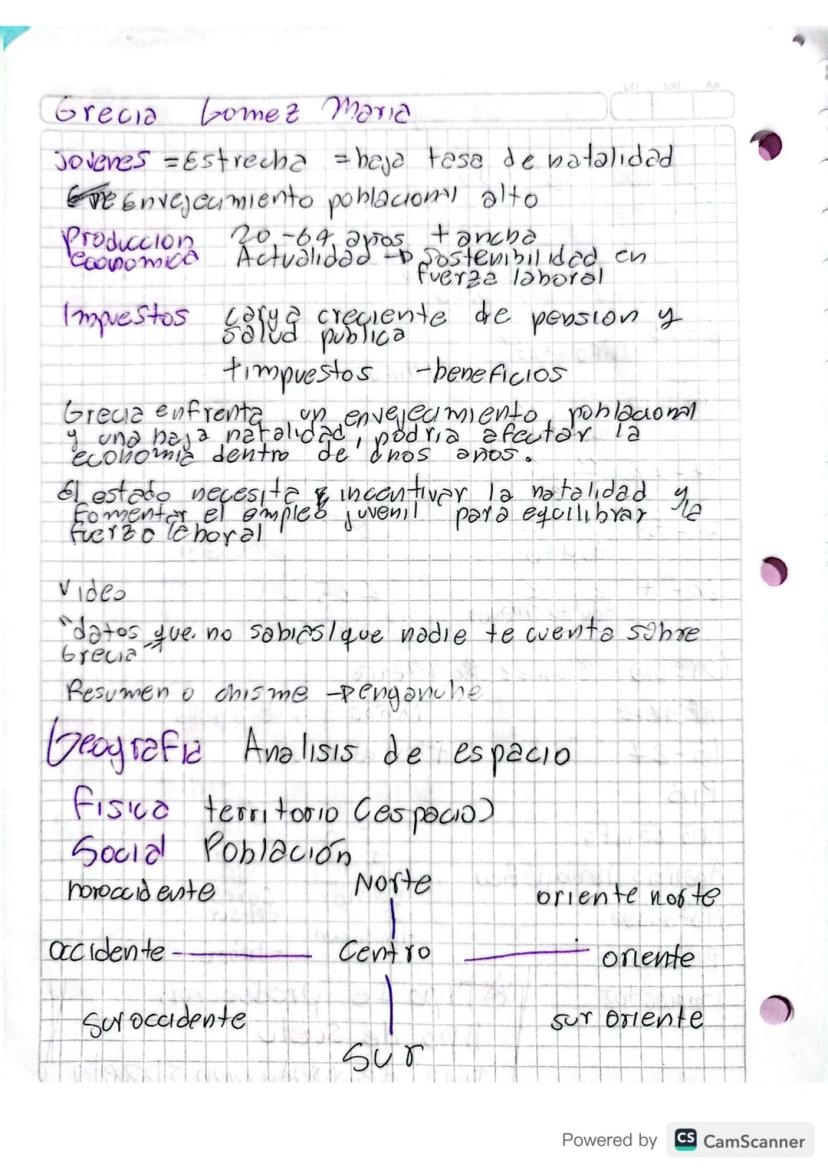 Grecia Gomez Maria
Jovenes = Estrecha = baja tasa de natalidad
Envejecimiento poblacional alto
Produccion 20-64 años + ancha
economica Actualidad → Sostenibilidad en
fuerza laboral
Impuestos carga creciente de pension y
salud publica
+impuestos -beneficios
Grecia enfrenta un envejecimiento poblacional
y una baja natalidad, podria afectar la
economia dentro de unos años.
El estado necesita incentivar la natalidad y
fomentar el empleo juvenil para equilibrar la
fuerza laboral
Video
"datos que no sabias/que nadie te cuenta sobre
Grecia"
Resumen o chisme → enganche
Geografia Analisis de espacio
Fisica territorio (espacio)
Social Población
noroccidente Norte oriente norte
occidente Centro oriente
sur occidente sur oriente
Sur
Powered by CS CamScanner